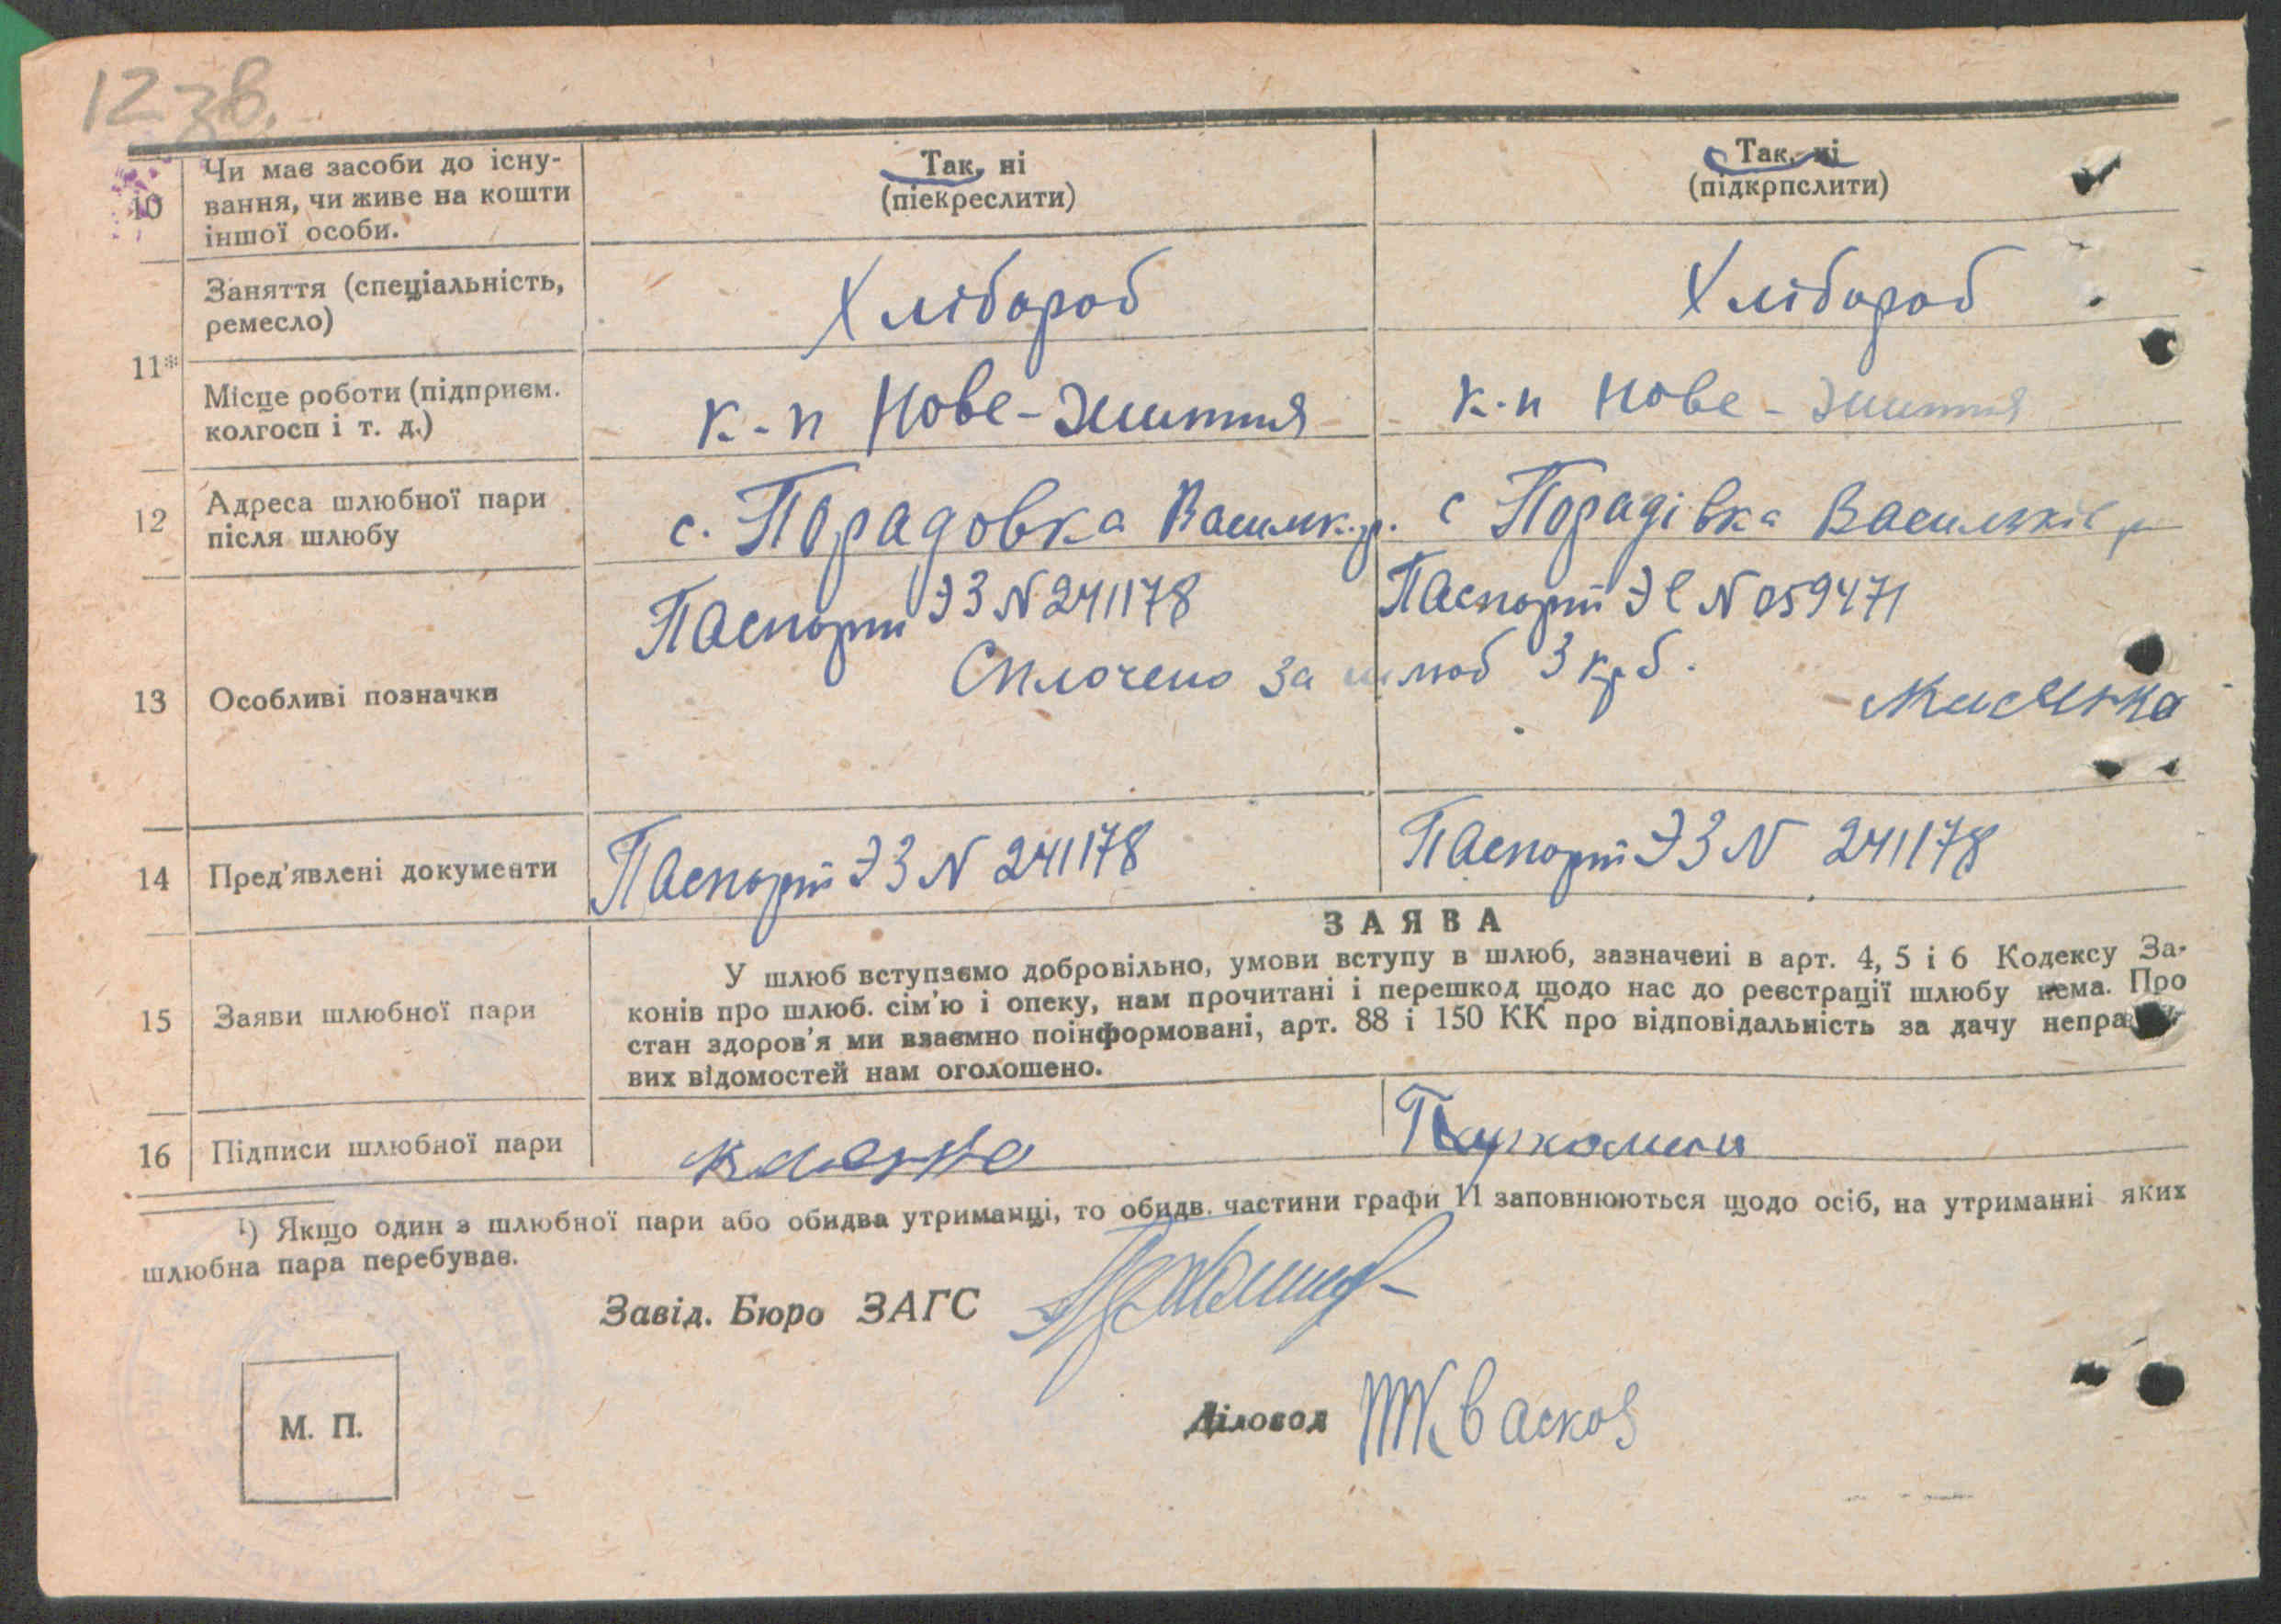 12 зв.
10 Чи має засоби до існу-
вання, чи живе на кошти
іншої особи.
Так, ні
(піекреслити)
Так, ні
(підкрпслити)
11*
Заняття (спеціальність,
ремесло)
Хлібороб
Хлібороб
Місце роботи (підприєм.
колгосп і т. д.)
к-п Нове-Життя
к-п Нове-Життя
12 Адреса шлюбної пари
після шлюбу
с. Порадовка Васильк.р.
с Порадівка Васильків р
13 Особливі позначки
Паспорт ЭЗ N 241178
Паспорт N 059471
Сплочено за шлюб 3 крб.
14 Пред'явлені документи
Паспорт ЭЗ N 241178
Паспорт ЭЗ N 241178
15 Заяви шлюбної пари
ЗАЯВА
У шлюб вступаємо добровільно, умови вступу в шлюб, зазначені в арт. 4, 5 і 6 Кодексу За-
конів про шлюб. сім'ю і опеку, нам прочитані і перешкод щодо нас до реєстрації шлюбу нема. Про
стан здоров'я ми взаємно поінформовані, арт. 88 і 150 КК про відповідальність за дачу неправди-
вих відомостей нам оголошено.
16 Підписи шлюбної пари
¹) Якщо один з шлюбної пари або обидва утриманці, то обидв. частини графи 11 заповнюються щодо осіб, на утриманні яких
шлюбна пара перебуває.
Завід. Бюро ЗАГС
Діловод
М. П.